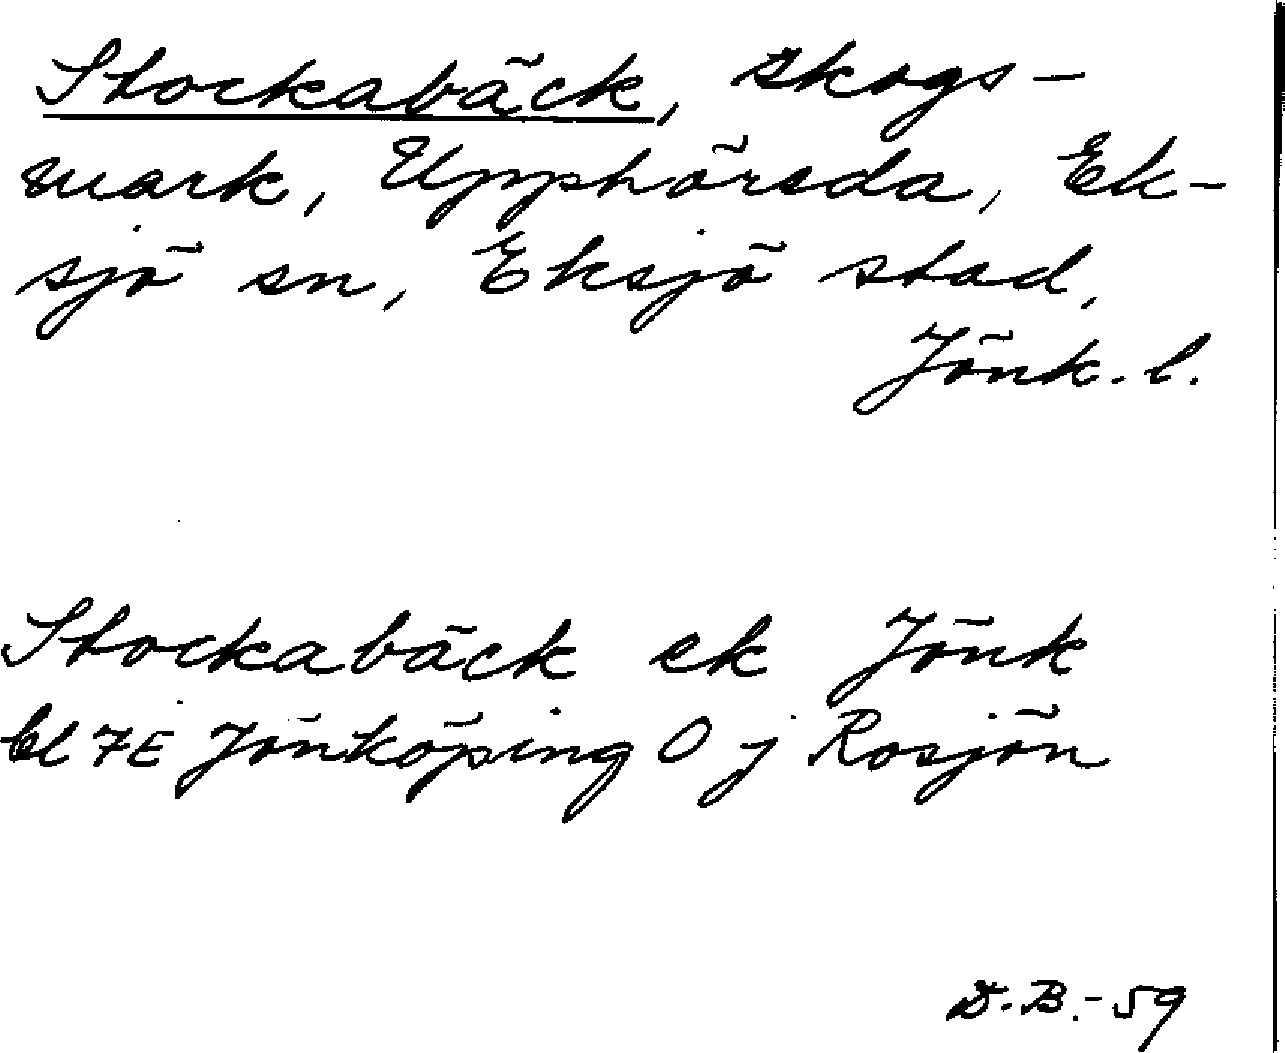 Stockabäck, skogs-
mark, Upphörsda, Ek-
sjö sn, Eksjö stad,
Jönk. l.
Stockabäck ek Jönk
bl 7E Jönköping O j Rosjön
D.B.-59